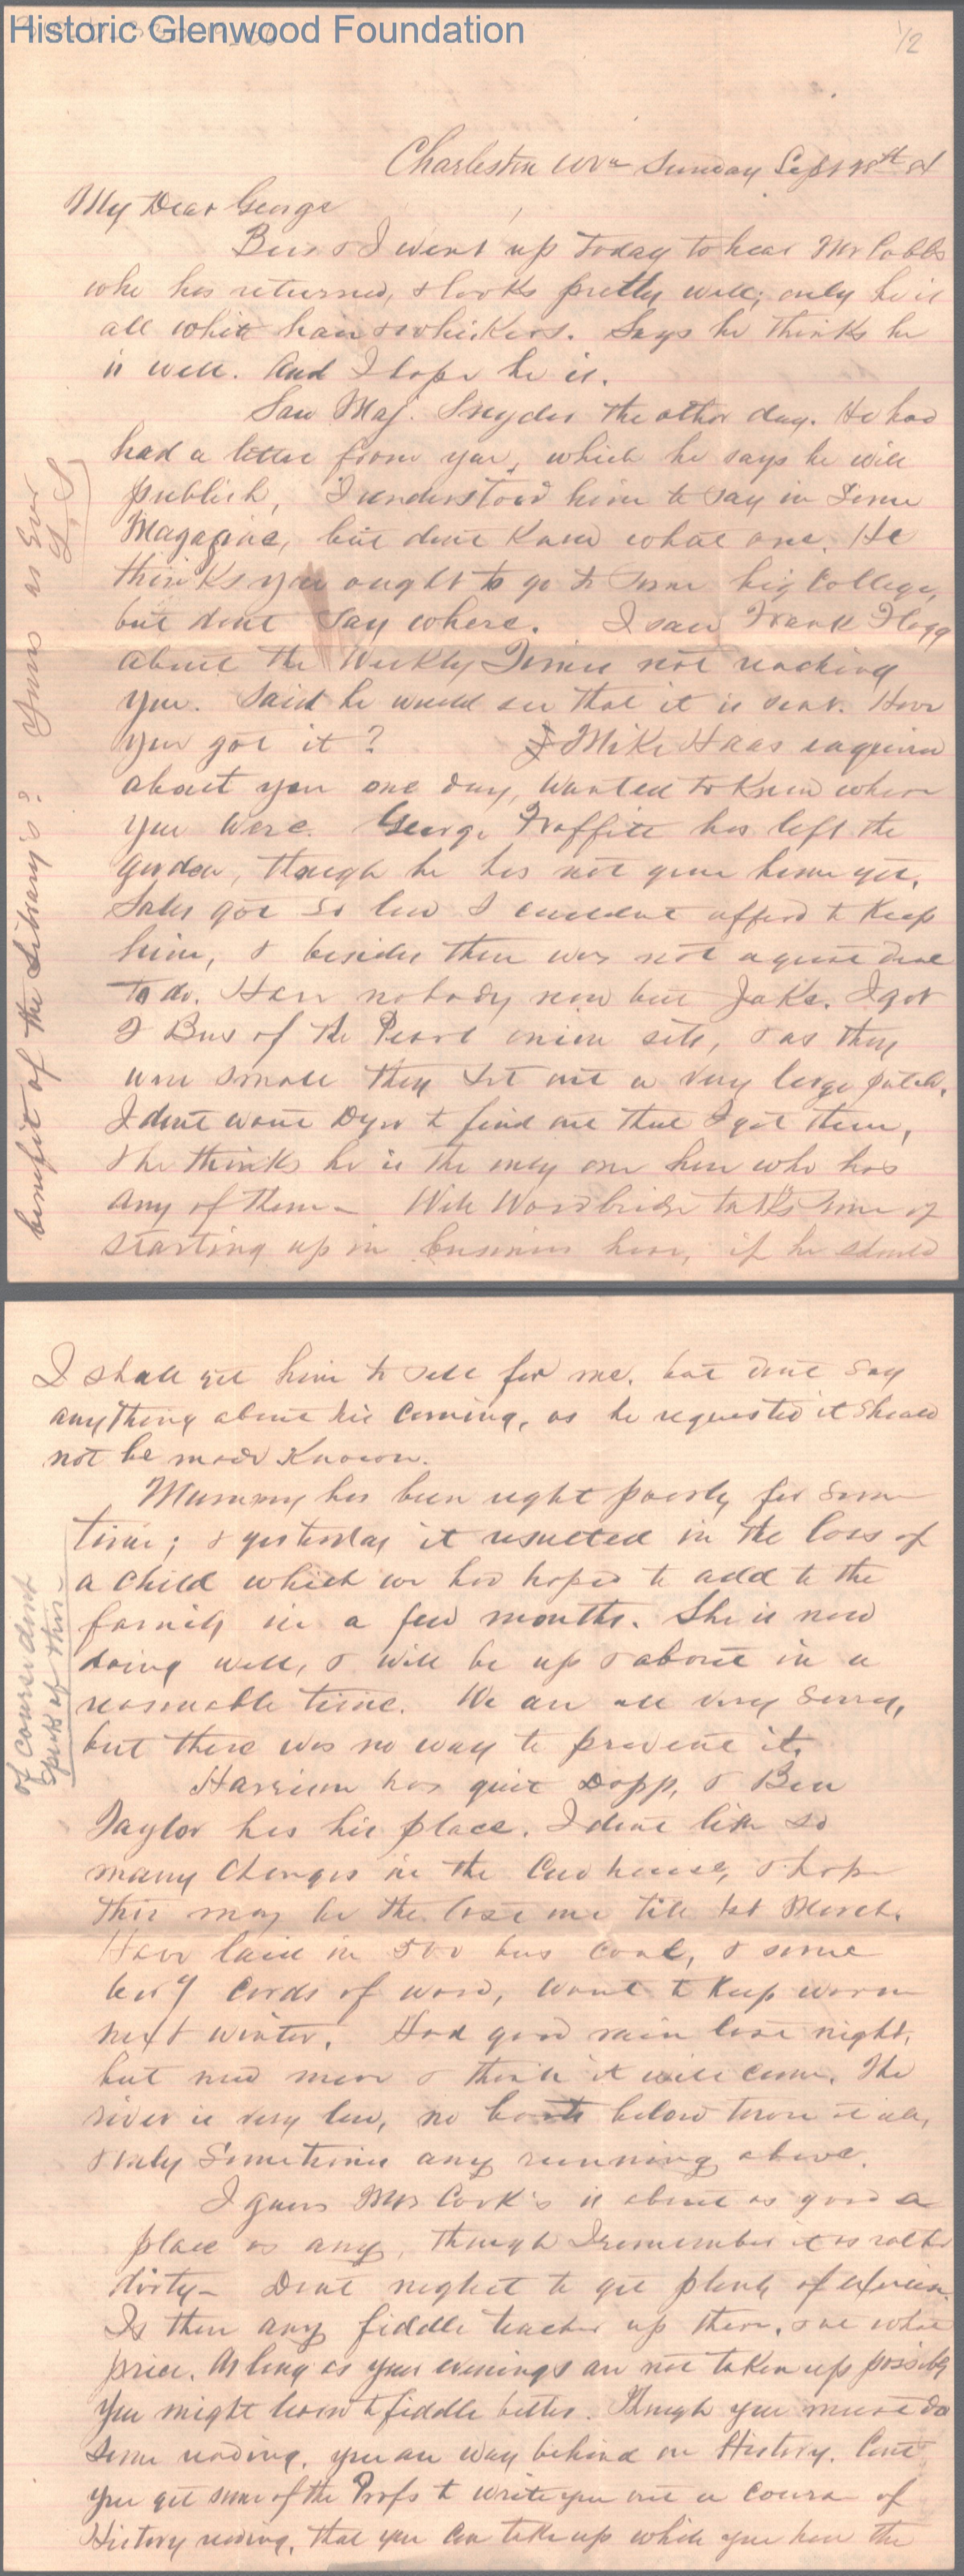 Historic Glenwood Foundation
1/2
Charleston WVa Sunday Sept 28th 84
My Dear George
Bus & I went up today to hear Mr Cobbs
who has returned, & looks pretty well; only he is
all white hair & whiskers. Says he thinks he
is well. And I hope he is.
Saw Maj. Snyder the other day. He had
had a letter from you, which he says he will
publish, I understood him to say in some
Magazine, but dont know what one. He
thinks you ought to go to some big College,
but dont say where. I saw Frank Flagg
about the Weekly Times not reaching
you. Said he would see that it is sent. Have
you got it? Mike Haas enquired
about you one day, wanted to know where
you were. George Proffitt has left the
garden, though he has not gone home yet.
Sales got so low I couldnt afford to keep
him, & besides there was not a great deal
to do. Have nobody now but Jake. I got
2 Bus of the Pearl onion sets, & as they
were small they set out a very large patch.
I dont want Dyer to find out that I got them,
& he thinks he is the only one here who has
any of them - Will Woodbridge talks some of
starting up in business here, if he should
benefit of the Library's? Yours as Ever
L. S
I shall get him to sell for me, but dont say
anything about his coming, as he requested it should
not be made known.
Mummy has been right poorly for some
time; & yesterday it resulted in the loss of
a child which we had hoped to add to the
family in a few months. She is now
doing well, & will be up & about in a
reasonable time. We are all very sorry,
but there was no way to prevent it.
of course dont
speak of this -
Harrison has quit Dopp, & Ben
Taylor has his place. I dont like so
many changes in the house, & hope
this may be the last one till 1st March.
Have laid in 500 bus coal, & some
cords of wood, want to keep warm
next winter. Had good rain last night,
but need more & think it will come. The
river is very low, no boats below town at all,
& only sometimes any running above.
I guess Mrs Cook's is about as good a
place as any, though I remember it as rather
dirty - Dont neglect to get plenty of exercise.
Is there any fiddle teacher up there, & at what
price. As long as your evenings are not taken up possibly
you might learn to fiddle better. Though you must do
some reading, you are way behind on History. Cant
you get some of the Profs to write you out a course of
History reading, that you can take up while you have the